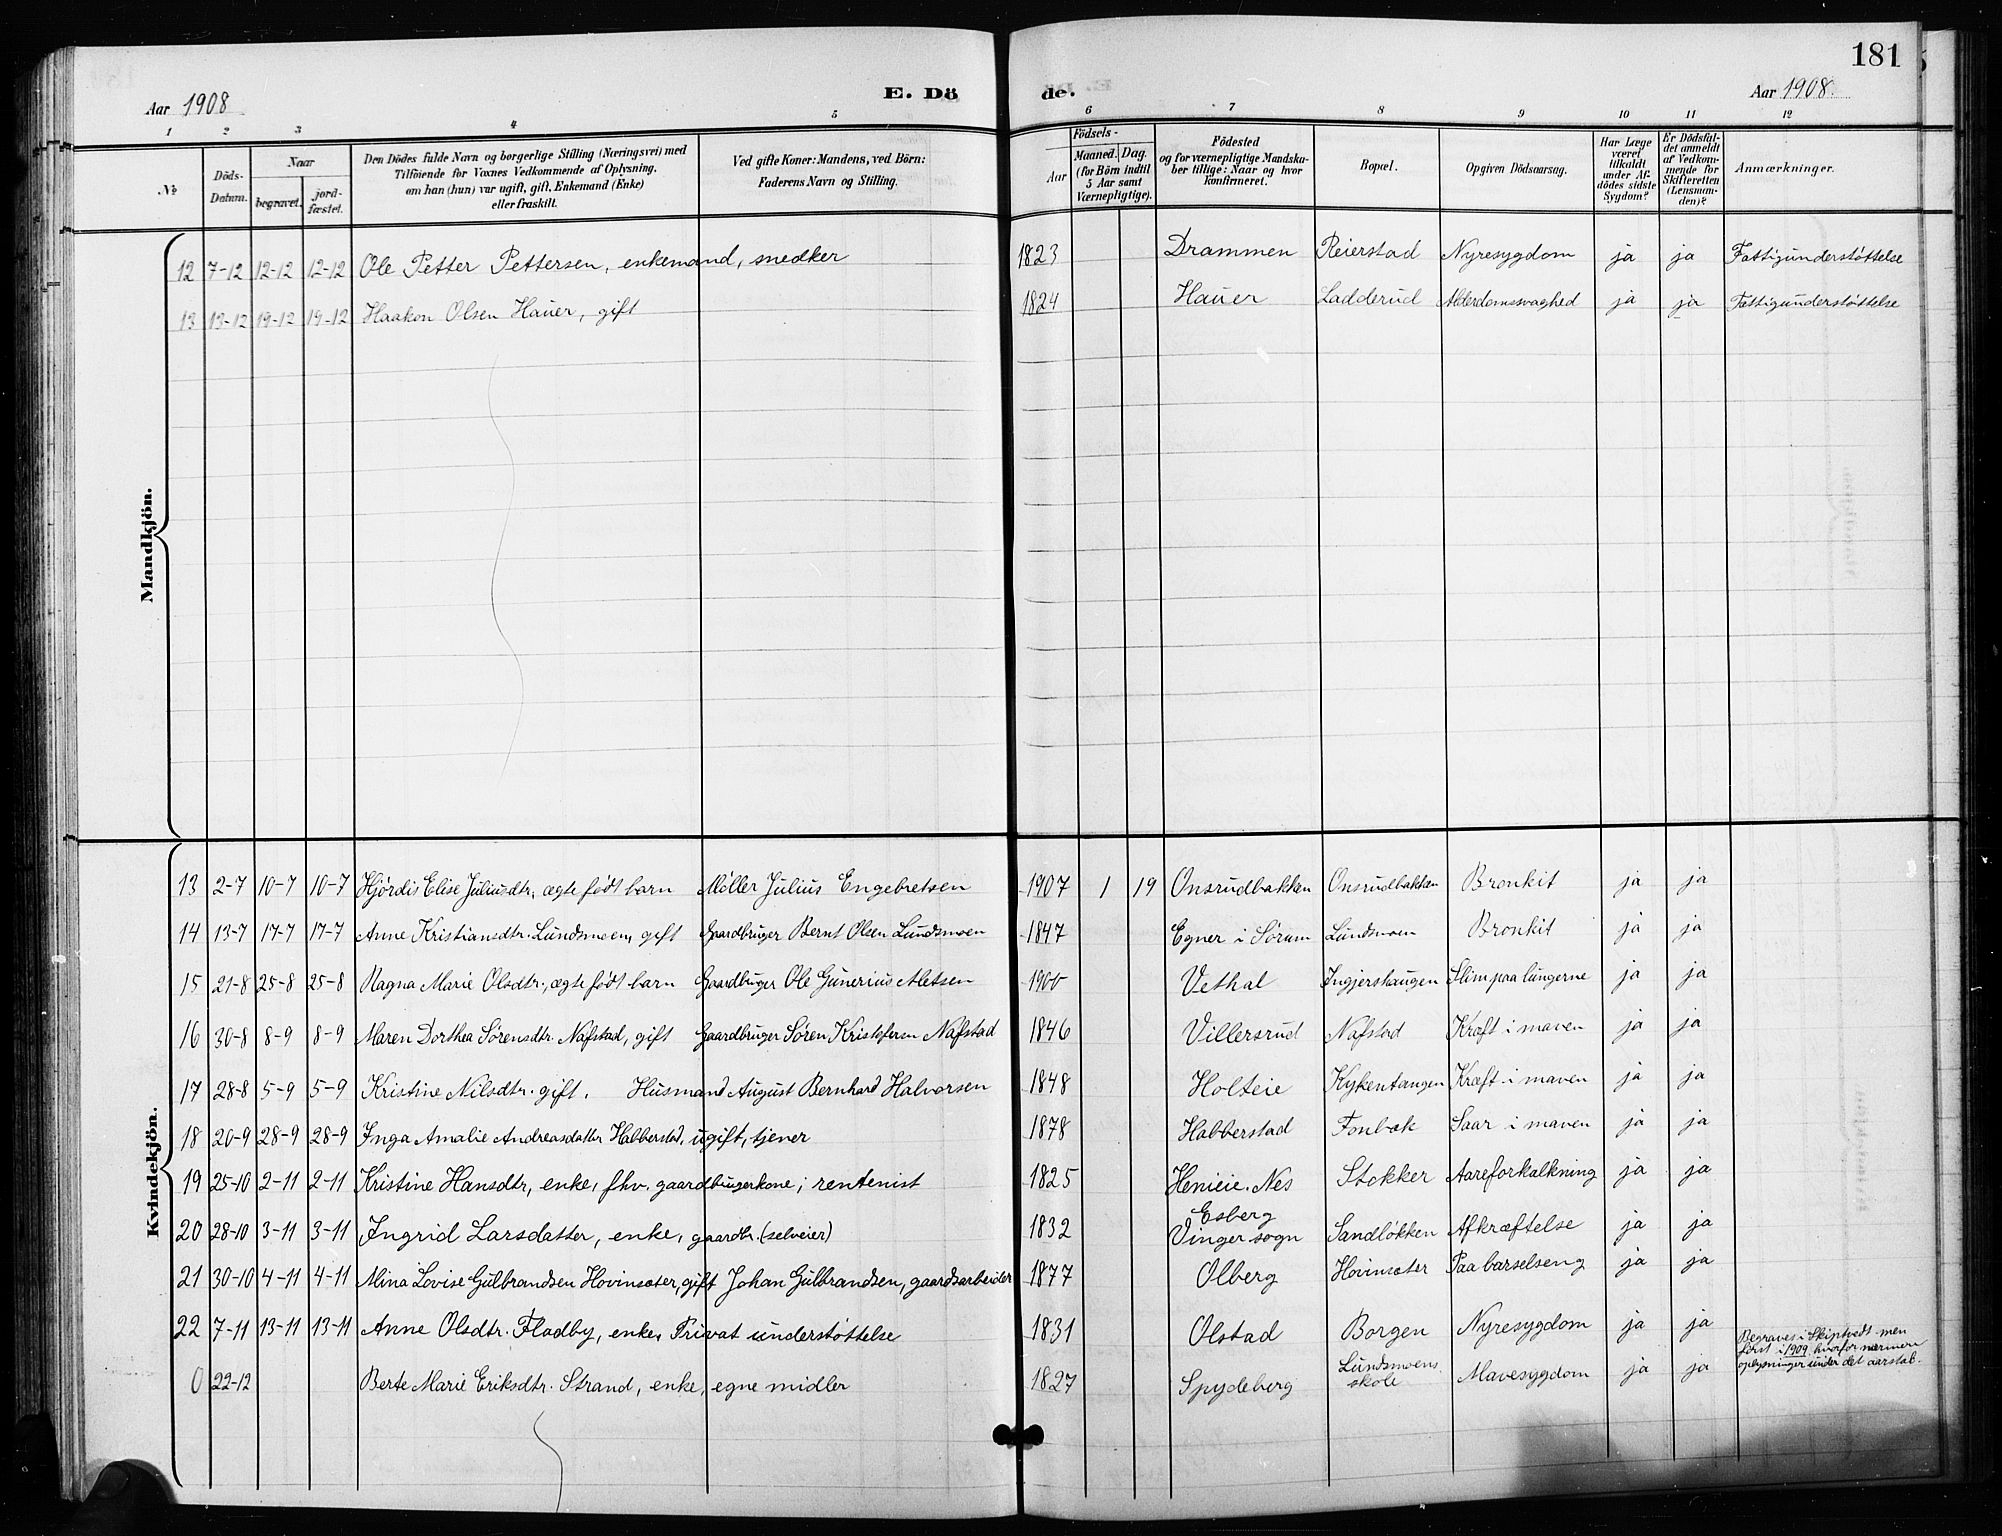 181
Aar 1908 E. Döde. Aar 1908.
1 2 3 4 5 6 7 8 9 10 11 12
№
Döds-Datum.
Naar
begravet. jord-fæstet.
Den Dödes fulde Navn og borgerlige Stilling (Næringsvei) med
Tilföiende for Voxnes Vedkommende af Oplysning,
om han (hun) var ugift, gift, Enkemand (Enke)
eller fraskilt.
Ved gifte Koner: Mandens, ved Börn:
Faderens Navn og Stilling.
Födsels-
Aar
Maaned. Dag.
(for Börn indtil
5 Aar samt
Værnepligtige).
Födested
og for værnepligtige Mandska-
ber tillige: Naar og hvor
konfirmeret.
Bopæl.
Opgiven Dödsaarsag.
Har Læge
været
tilkaldt
under Af-
dödes sidste
Sygdom?
Er Dödsfal-
det anmeldt
af Vedkom-
mende for
Skifteretten
(Lensman-
den)?
Anmærkninger.
Mandkjön.
12 7-12 12-12 12-12 Ole Petter Pettersen, enkemand, snedker 1823 Drammen Reierstad Nyresygdom ja ja Fattigunderstøttelse
13 13-12 19-12 19-12 Haakon Olsen Hauer, gift 1824 Hauer Ladderud Alderdomssvaghed ja ja Fattigunderstøttelse
Kvindekjön.
13 2-7 10-7 10-7 Hjørdis Elise Juliusdtr., ægte født barn Møller Julius Engebretsen 1907 1 19 Onsrudbakken Onsrudbakken Bronkit ja ja
14 13-7 17-7 17-7 Anne Kristiansdtr. Lundsmoen, gift Gaardbruger Bernt Olsen Lundsmoen 1847 Egner i Sørum Lundsmoen Bronkit ja ja
15 21-8 25-8 25-8 Magna Marie Olsdtr., ægte født barn Gaardbruger Ole Gunerius Aletsen 1900 Vethal Ingjershaugen Slim paa lungerne ja ja
16 30-8 8-9 8-9 Maren Dorthea Sørensdtr. Nafstad, gift Gaardbruger Søren Kristofersen Nafstad 1846 Villersrud Nafstad Kræft i maven ja ja
17 28-8 5-9 5-9 Kristine Nilsdtr. gift. Husmand August Bernhard Halvorsen 1848 Holteie Kykentangen Kræft i maven ja ja
18 20-9 28-9 28-9 Inga Amalie Andreasdatter Habberstad, ugift, tjener 1878 Habberstad Fonbæk Saar i maven ja ja
19 25-10 2-11 2-11 Kristine Hansdtr, enke, fhv. gaardbrugerkone; rentenist 1825 Henieie. Nes Stokker Aareforkalkning ja ja
20 28-10 3-11 3-11 Ingrid Larsdatter, enke, gaardbr. (selveier) 1832 Esberg Vinger sogn Sandløkken Afkræftelse ja ja
21 30-10 4-11 4-11 Mina Lovise Gulbrandsen Hovinsæter, gift Johan Gulbrandsen, gaardsarbeider 1877 Olberg Hovinsæter Paa barselseng ja ja
22 7-11 13-11 13-11 Anne Olsdtr. Fladby, enke, Privat understøttelse 1831 Olstad Borgen Nyresygdom ja ja
0 22-12 Berte Marie Eriksdtr. Strand, enke, egne midler 1827 Spydeberg Lundsmoens skole Mavesygdom ja ja Begraves i Skiptvedt men
først i 1909 hvorfor nærmere
oplysninger under det aarstal.